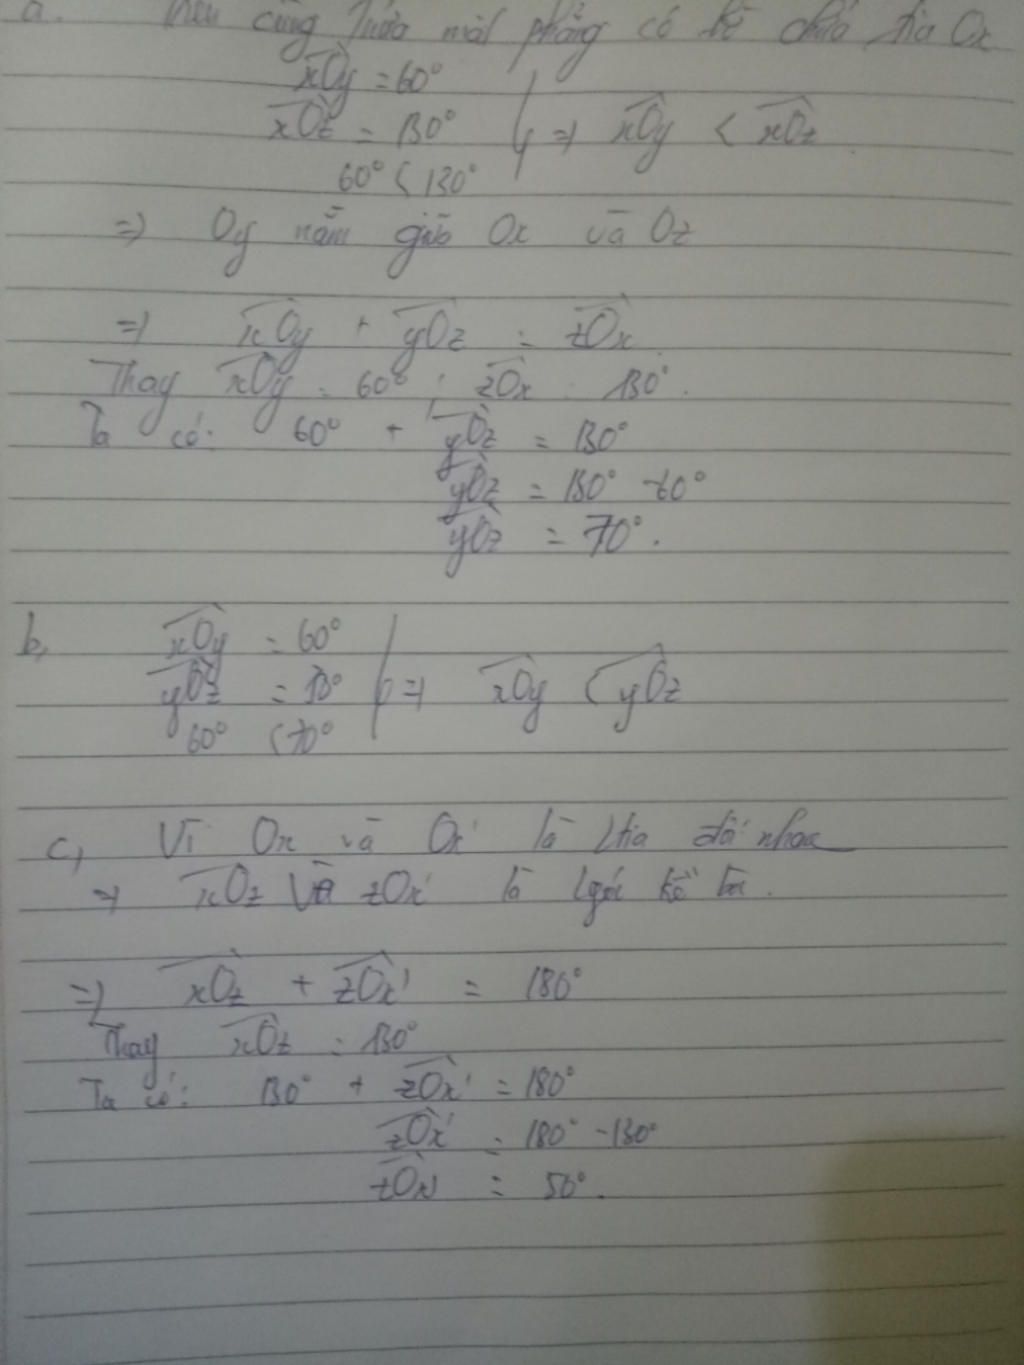 a. Trên cùng 1 nửa mặt phẳng có bờ chứa tia Ox
xOy = 60°
xOz = 130° } => xOy < xOz
60° < 130°
=> Oy nằm giữa Ox và Oz
=> xOy + yOz = zOx.
Thay xOy = 60° ; zOx = 130°.
Ta có: 60° + yOz = 130°
yOz = 130° - 60°
yOz = 70°.
b, xOy = 60°
yOz = 70° } => xOy < yOz
60° < 70°
c, Vì Ox và Ox' là 2 tia đối nhau
=> xOz và zOx' là 2 góc kề bù.
=> xOz + zOx' = 180°
Thay xOz = 130°
Ta có: 130° + zOx' = 180°
zOx' = 180° - 130°
zOx' = 50°.